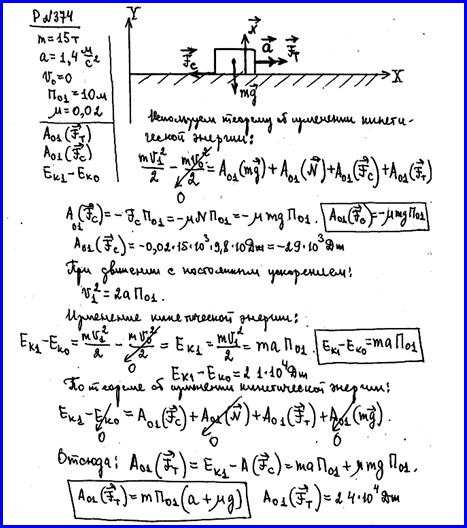 Р№374
m=15т
a=1,4 м/с²
v₀=0
П₀₁=10м
μ=0,02
A₀₁(F⃗т)
A₀₁(F⃗с)
Eк1-Eк0
Y
N⃗
a⃗
F⃗с
F⃗т
X
mg⃗
Используем теорему об изменении кинети-
ческой энергии:
mv₁²/2 - mv₀²/2 = A₀₁(mg⃗) + A₀₁(N⃗) + A₀₁(F⃗с) + A₀₁(F⃗т)
0
A₀₁(F⃗с) = -FсП₀₁ = -μNП₀₁ = -μmgП₀₁. A₀₁(F⃗с) = -μmgП₀₁
A₀₁(F⃗с) = -0,02·15·10³·9,8·10Дж = -29·10³Дж
При движении с постоянным ускорением:
v₁² = 2aП₀₁.
Изменение кинетической энергии:
Eк1-Eк0 = mv₁²/2 - mv₀²/2 = Eк1 = mv₁²/2 = maП₀₁. Eк1-Eк0 = maП₀₁
0
Eк1-Eк0 = 21·10⁴Дж
По теореме об изменении кинетической энергии:
Eк1-Eк0 = A₀₁(F⃗с) + A₀₁(N⃗) + A₀₁(F⃗т) + A₀₁(mg⃗).
0 0 0
Отсюда: A₀₁(F⃗т) = Eк1 - A(F⃗с) = maП₀₁ + μmgП₀₁.
A₀₁(F⃗т) = mП₀₁(a+μg) A₀₁(F⃗т) = 24·10⁴Дж